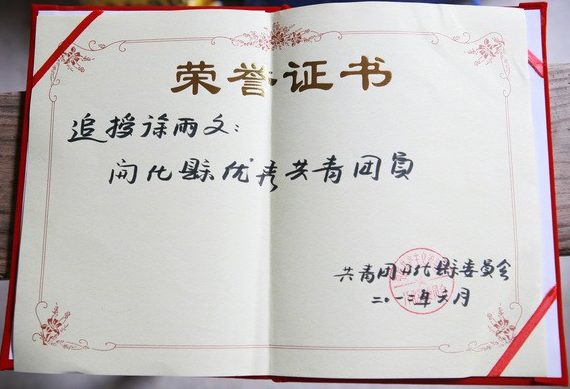 荣誉证书
追授徐雨文：
开化縣优秀共青团员
共青团开化縣委員会
二〇一二年六月